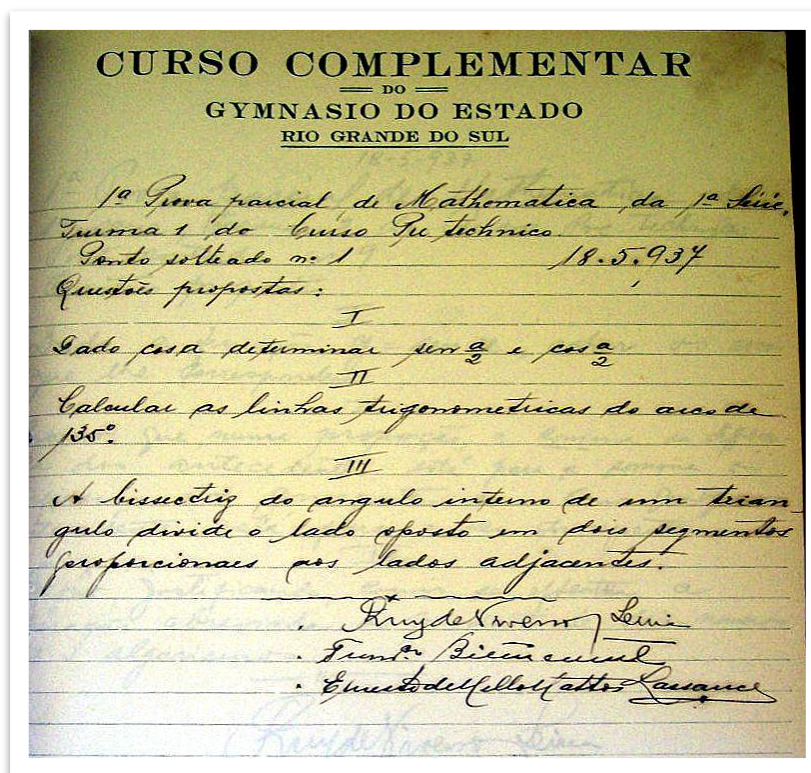 CURSO COMPLEMENTAR
DO
GYMNASIO DO ESTADO
RIO GRANDE DO SUL
1ª Prova parcial de Mathematica da 1ª Série,
Turma 1 do Curso Pre technico.
Ponto sorteado nº 1 18.5.937
Questões propostas:
I
Dado cos a determinar sen a/2 e cos a/2
II
Calcular as linhas trigonometricas do arco de
135º.
III
A bissectriz do angulo interno de um trian
gulo divide o lado oposto em dois segmentos
proporcionaes aos lados adjacentes.
Ruy de
Ernesto de Mello Mattos Lassance